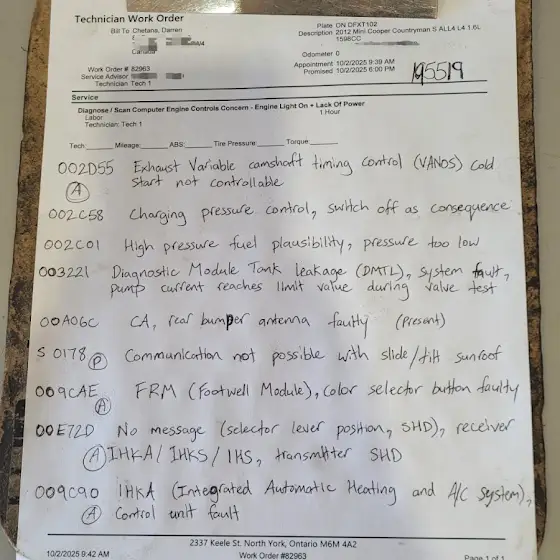 Technician Work Order
Bill To Chetans, Darren
Canada
Plate ON DFXT102
Description 2012 Mini Cooper Countryman S ALL4 L4 1.6L
1598CC
Odometer 0
Work Order # 82963
Service Advisor
Technician Tech 1
Appointment 10/2/2025 9:39 AM
Promised 10/2/2025 6:00 PM
Service
Diagnose / Scan Computer Engine Controls Concern - Engine Light On + Lack Of Power
Labor 1 Hour
Technician: Tech 1
Tech: Mileage: ABS: Tire Pressure: Torque:
002D55 Exhaust Variable camshaft timing control (VANOS) cold
(A) start not controllable
002C58 Charging pressure control, switch off as consequence
002C01 High pressure fuel plausibility, pressure too low
003221 Diagnostic Module Tank leakage (DMTL), system fault,
pump current reaches limit value during valve test
00A06C CA, rear bumper antenna faulty (Present)
S 0178 (P) Communication not possible with slide/tilt sunroof
009CAE FRM (Footwell Module), color selector button faulty
(A)
00E72D No message (selector lever position, SHD), receiver
(A) IHKA / IHKS / IHS, transmitter SHD
009C90 IHKA (Integrated Automatic Heating and A/C system),
(A) Control unit fault
2337 Keele St. North York, Ontario M6M 4A2
10/2/2025 9:42 AM Work Order #82963 Page 1 of 1